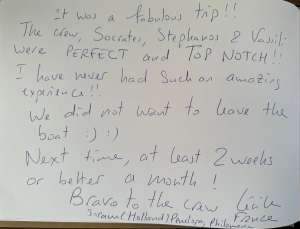 It was a fabulous trip!!
The crew, Socrates, Stephanos & Vassili
were PERFECT and TOP NOTCH!!
I have never had such an amazing
experience!!
We did not want to leave the
boat :) :)
Next time, at least 2 weeks
or better a month!
Bravo to the crew
(Holland) Penelope, Philomena
France